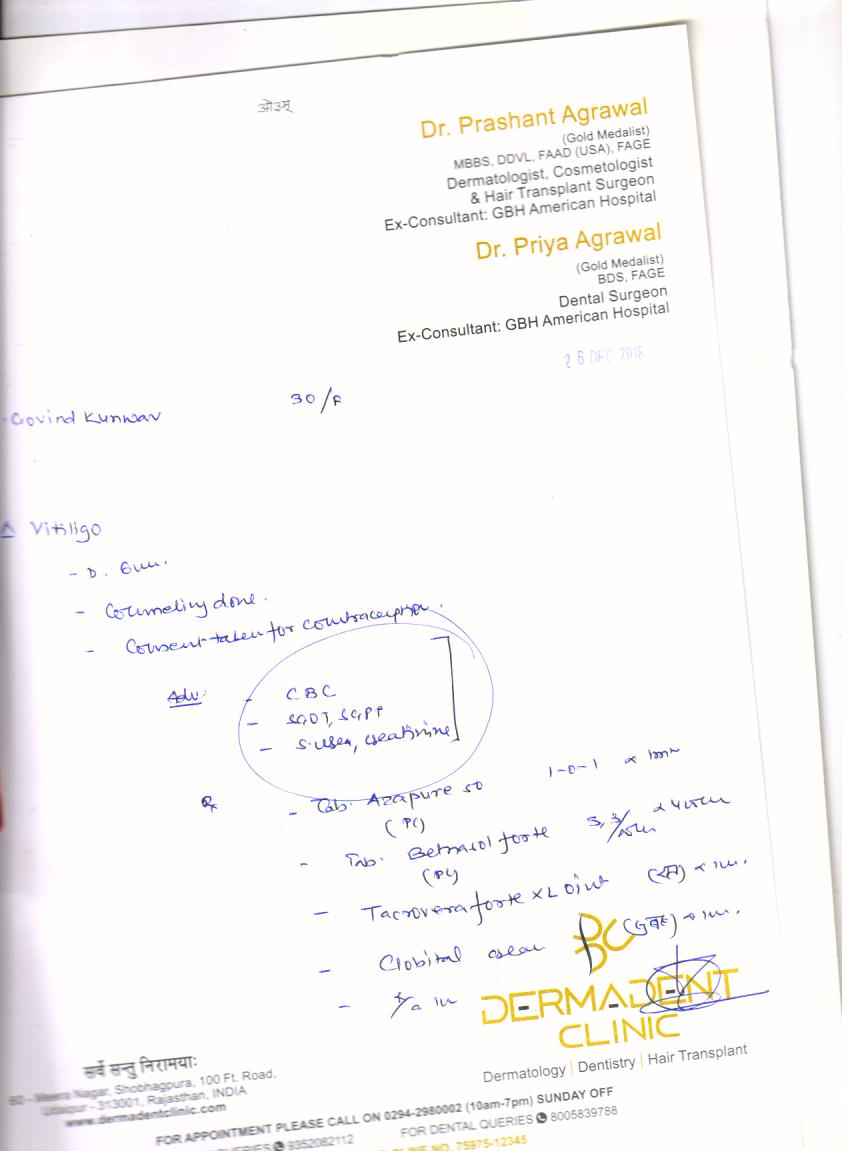 ओउम्
Dr. Prashant Agrawal
(Gold Medalist)
MBBS, DDVL, FAAD (USA), FAGE
Dermatologist, Cosmetologist
& Hair Transplant Surgeon
Ex-Consultant: GBH American Hospital
Dr. Priya Agrawal
(Gold Medalist)
BDS, FAGE
Dental Surgeon
Ex-Consultant: GBH American Hospital
26 DEC 2018
Govind Kunwar 30/F
Δ Vitiligo
- D.
- Counseling done.
- Consent taken for contraception.
Adv: - CBC
- SGOT, SGPT
- S. urea, creatinine
Rx - Tab. Azapure 50 1-0-1 x 1m
(PC)
- Tab. Betnasol forte x 4
(PC)
- Tacrovera forte XL oint x 1m.
- Clobital (सुबह) x 1m.
DERMADENT
CLINIC
Dermatology | Dentistry | Hair Transplant
सर्वे सन्तु निरामयाः
60 - Meera Nagar, Shobhagpura, 100 Ft. Road,
Udaipur - 313001, Rajasthan, INDIA
www.dermadentclinic.com
FOR APPOINTMENT PLEASE CALL ON 0294-2980002 (10am-7pm) SUNDAY OFF
QUERIES 9352082112 FOR DENTAL QUERIES 8005839788
NO. 75975-12345